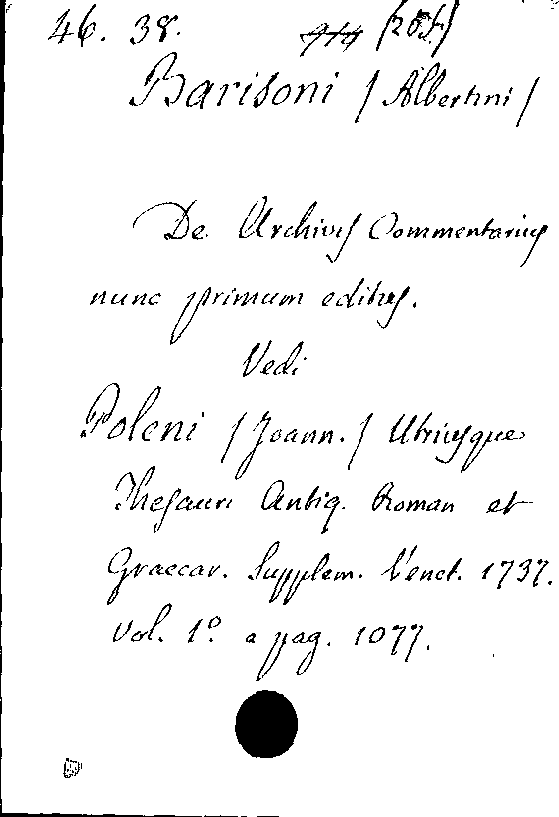 46. 38.
Barisoni /Albertini/
De Archivis Commentarius
nunc primum editus.
Vedi
Poleni /Joann./ Utriusque
Thesauri Antiq. Roman et
Graecar. Supplem. Venet. 1737.
Vol. 1º. a pag. 1077.